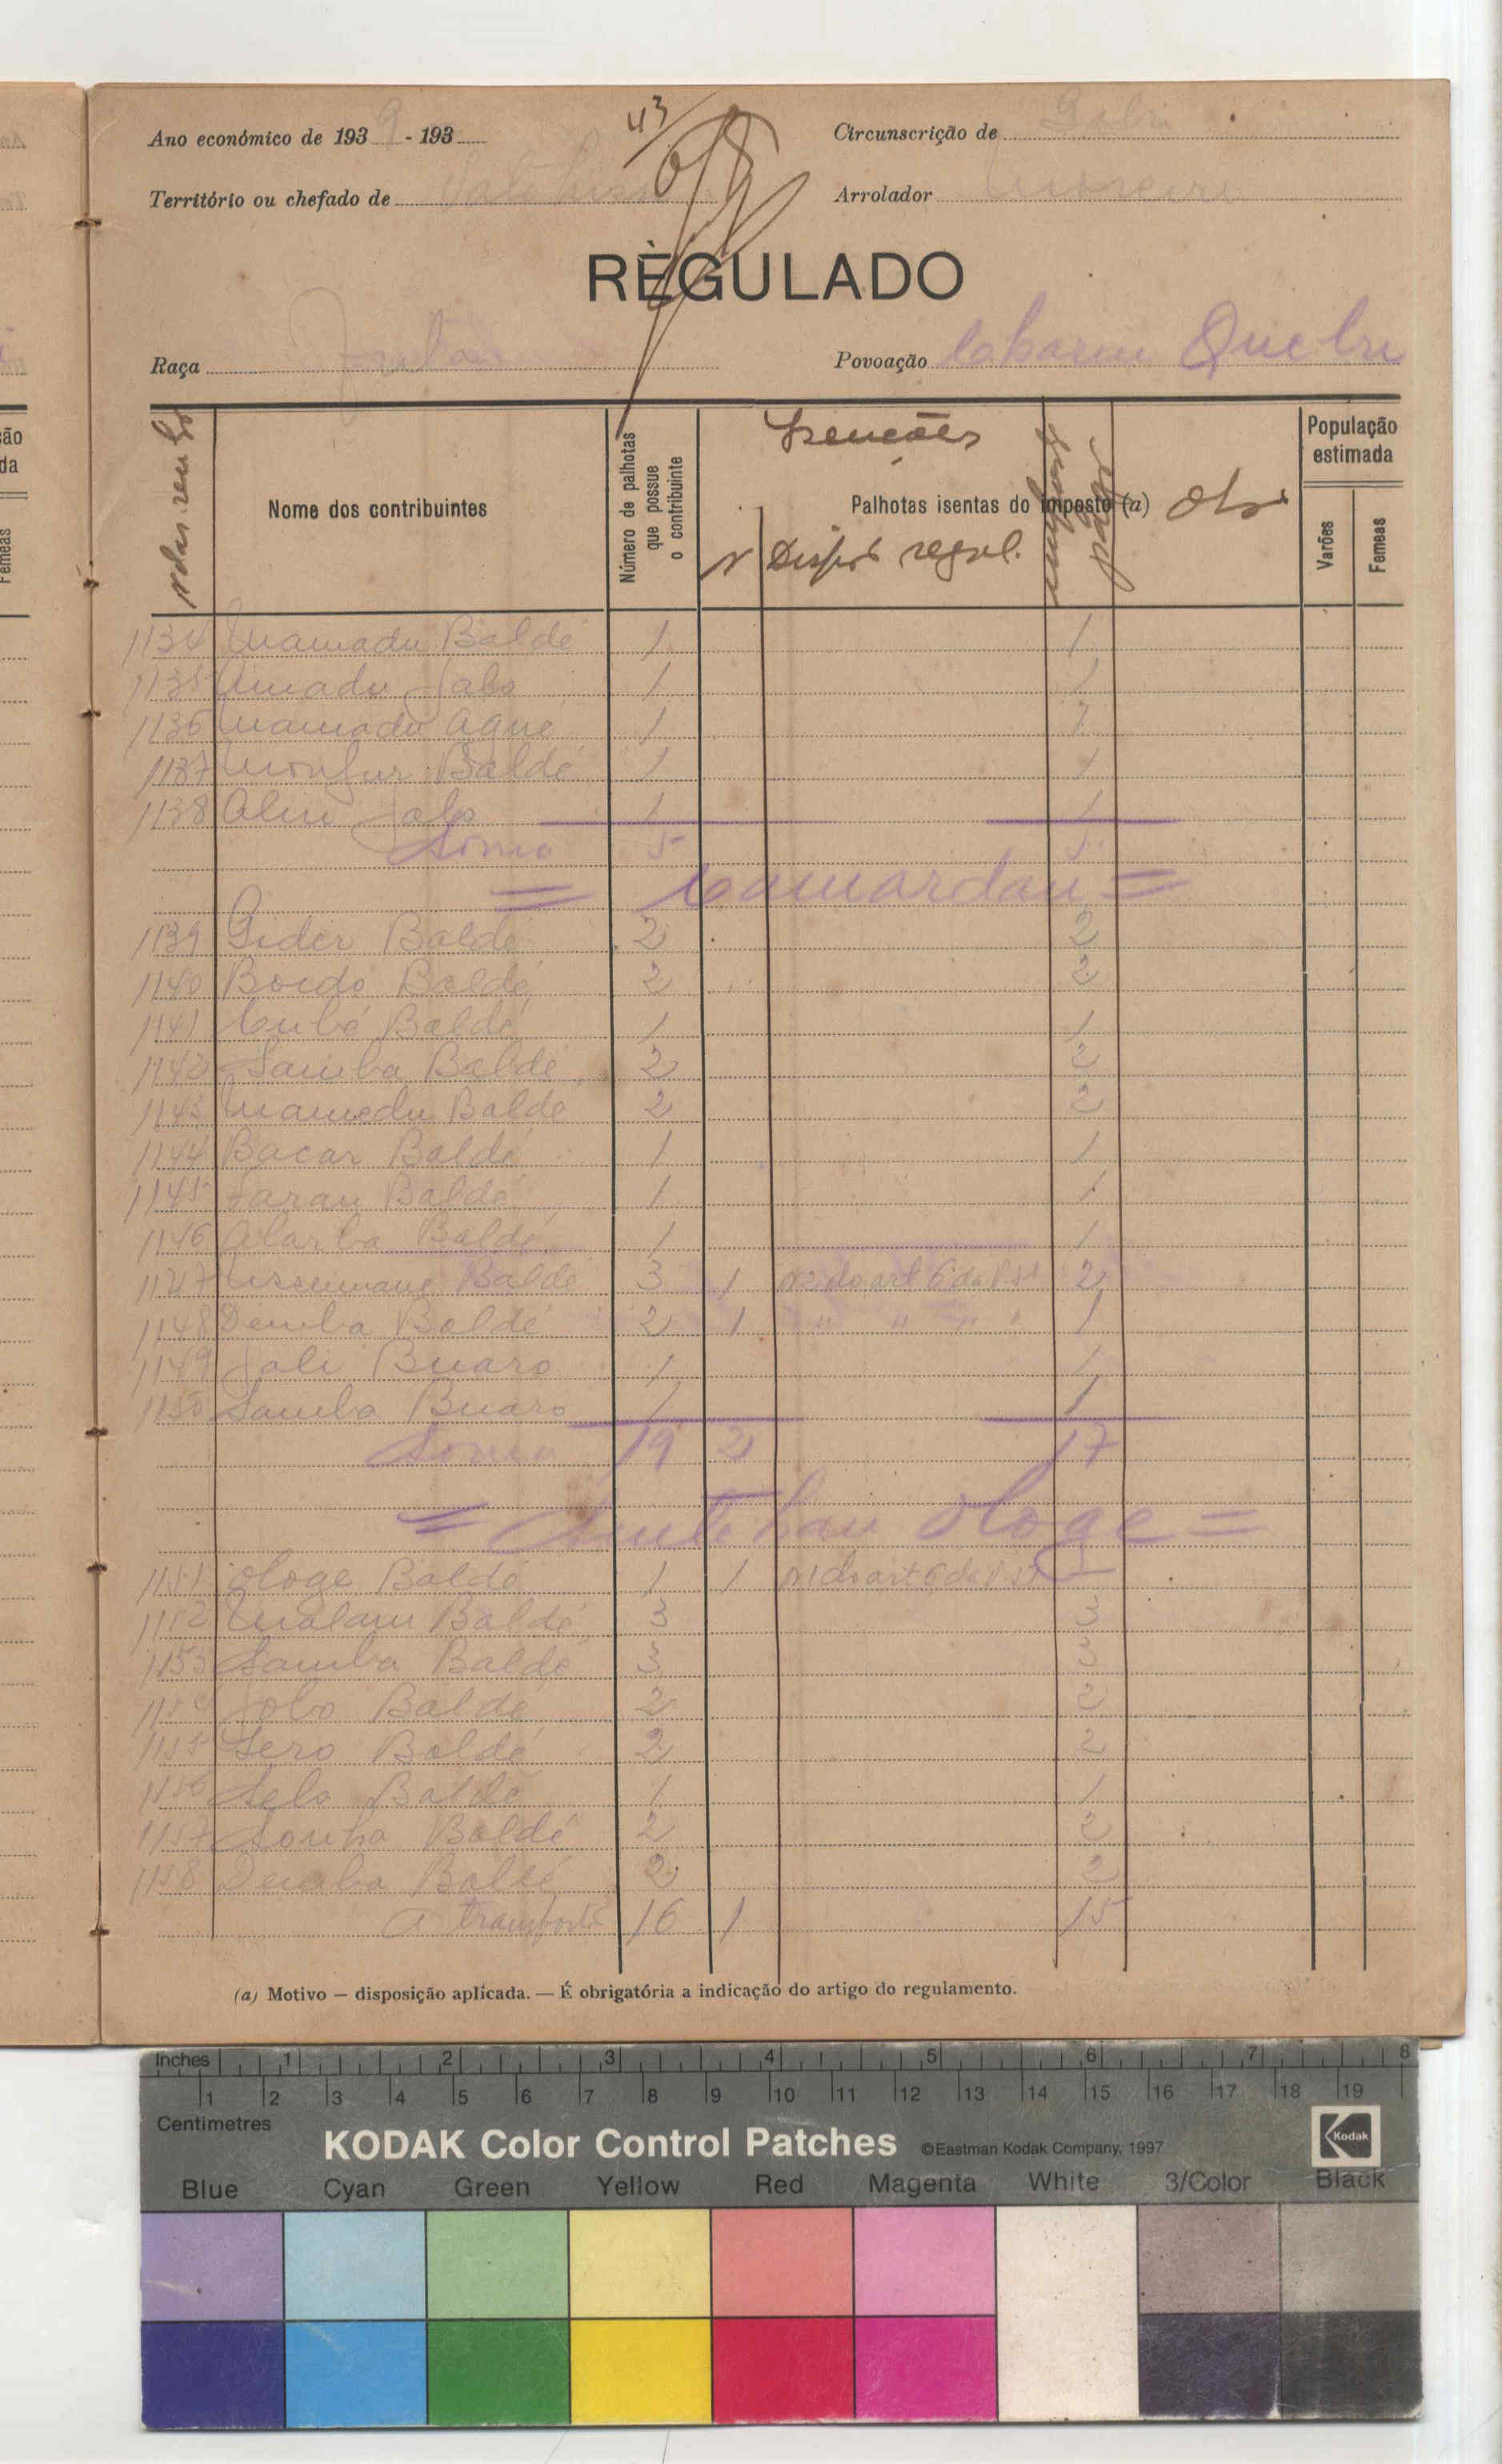 Ano económico de 193 9 - 193
43
Circunscrição de Gabu
Território ou chefado de
Arrolador Moreira
RÈGULADO
Raça
Povoação Quebu
Nome dos contribuintes
Número de palhotas que possue o contribuinte
Isenções
Palhotas isentas do imposto (a)
N Dispos regul.
Obs
População estimada
Varões
Femeas
1134 Mamadu Baldé 1 1
1135 Amadu Jalo 1 1
1136 Mamadu Agné 1 1
1137 Monjur Baldé 1 1
1138 Aliu Jalo 1 1
Soma 5 5
= Camardau =
1139 Gider Baldé 2 2
1140 Boido Baldé 2 2
1141 Cumbé Baldé 1 1
1142 Samba Baldé 2 2
1143 Mamadu Baldé 2 2
1144 Bacar Baldé 1 1
1145 Faran Baldé 1 1
1146 Alarba Baldé 1 1
1147 Ussumane Baldé 3 1 n 2 do art 6 da 2
1148 Demba Baldé 2 1 " " " " 1
1149 Joli Buaro 1 1
1150 Samba Buaro 1 1
Soma 19 2 17
= Ologe =
1151 Ologe Baldé 1 1 n 1 do art 6 da —
1152 Malam Baldé 3 3
1153 Samba Baldé 3 3
1154 Jobo Baldé 2 2
1155 Sero Baldé 2 2
1156 Selo Baldé 1 1
1157 Baldé 2 2
1158 Demba Baldé 2 2
A transporte 16 1 15
(a) Motivo — disposição aplicada. — É obrigatória a indicação do artigo do regulamento.
Inches 1 2 3 4 5 6 7 8
1 2 3 4 5 6 7 8 9 10 11 12 13 14 15 16 17 18 19
Centimetres
KODAK Color Control Patches ©Eastman Kodak Company, 1997 Kodak
Blue Cyan Green Yellow Red Magenta White 3/Color Black